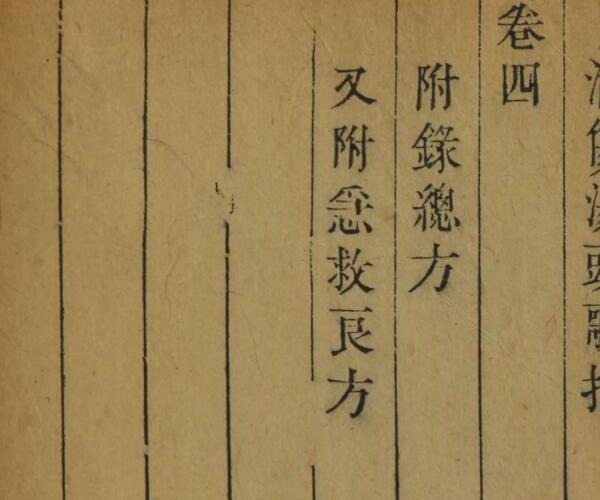 卷四
附錄總方
又附急救良方